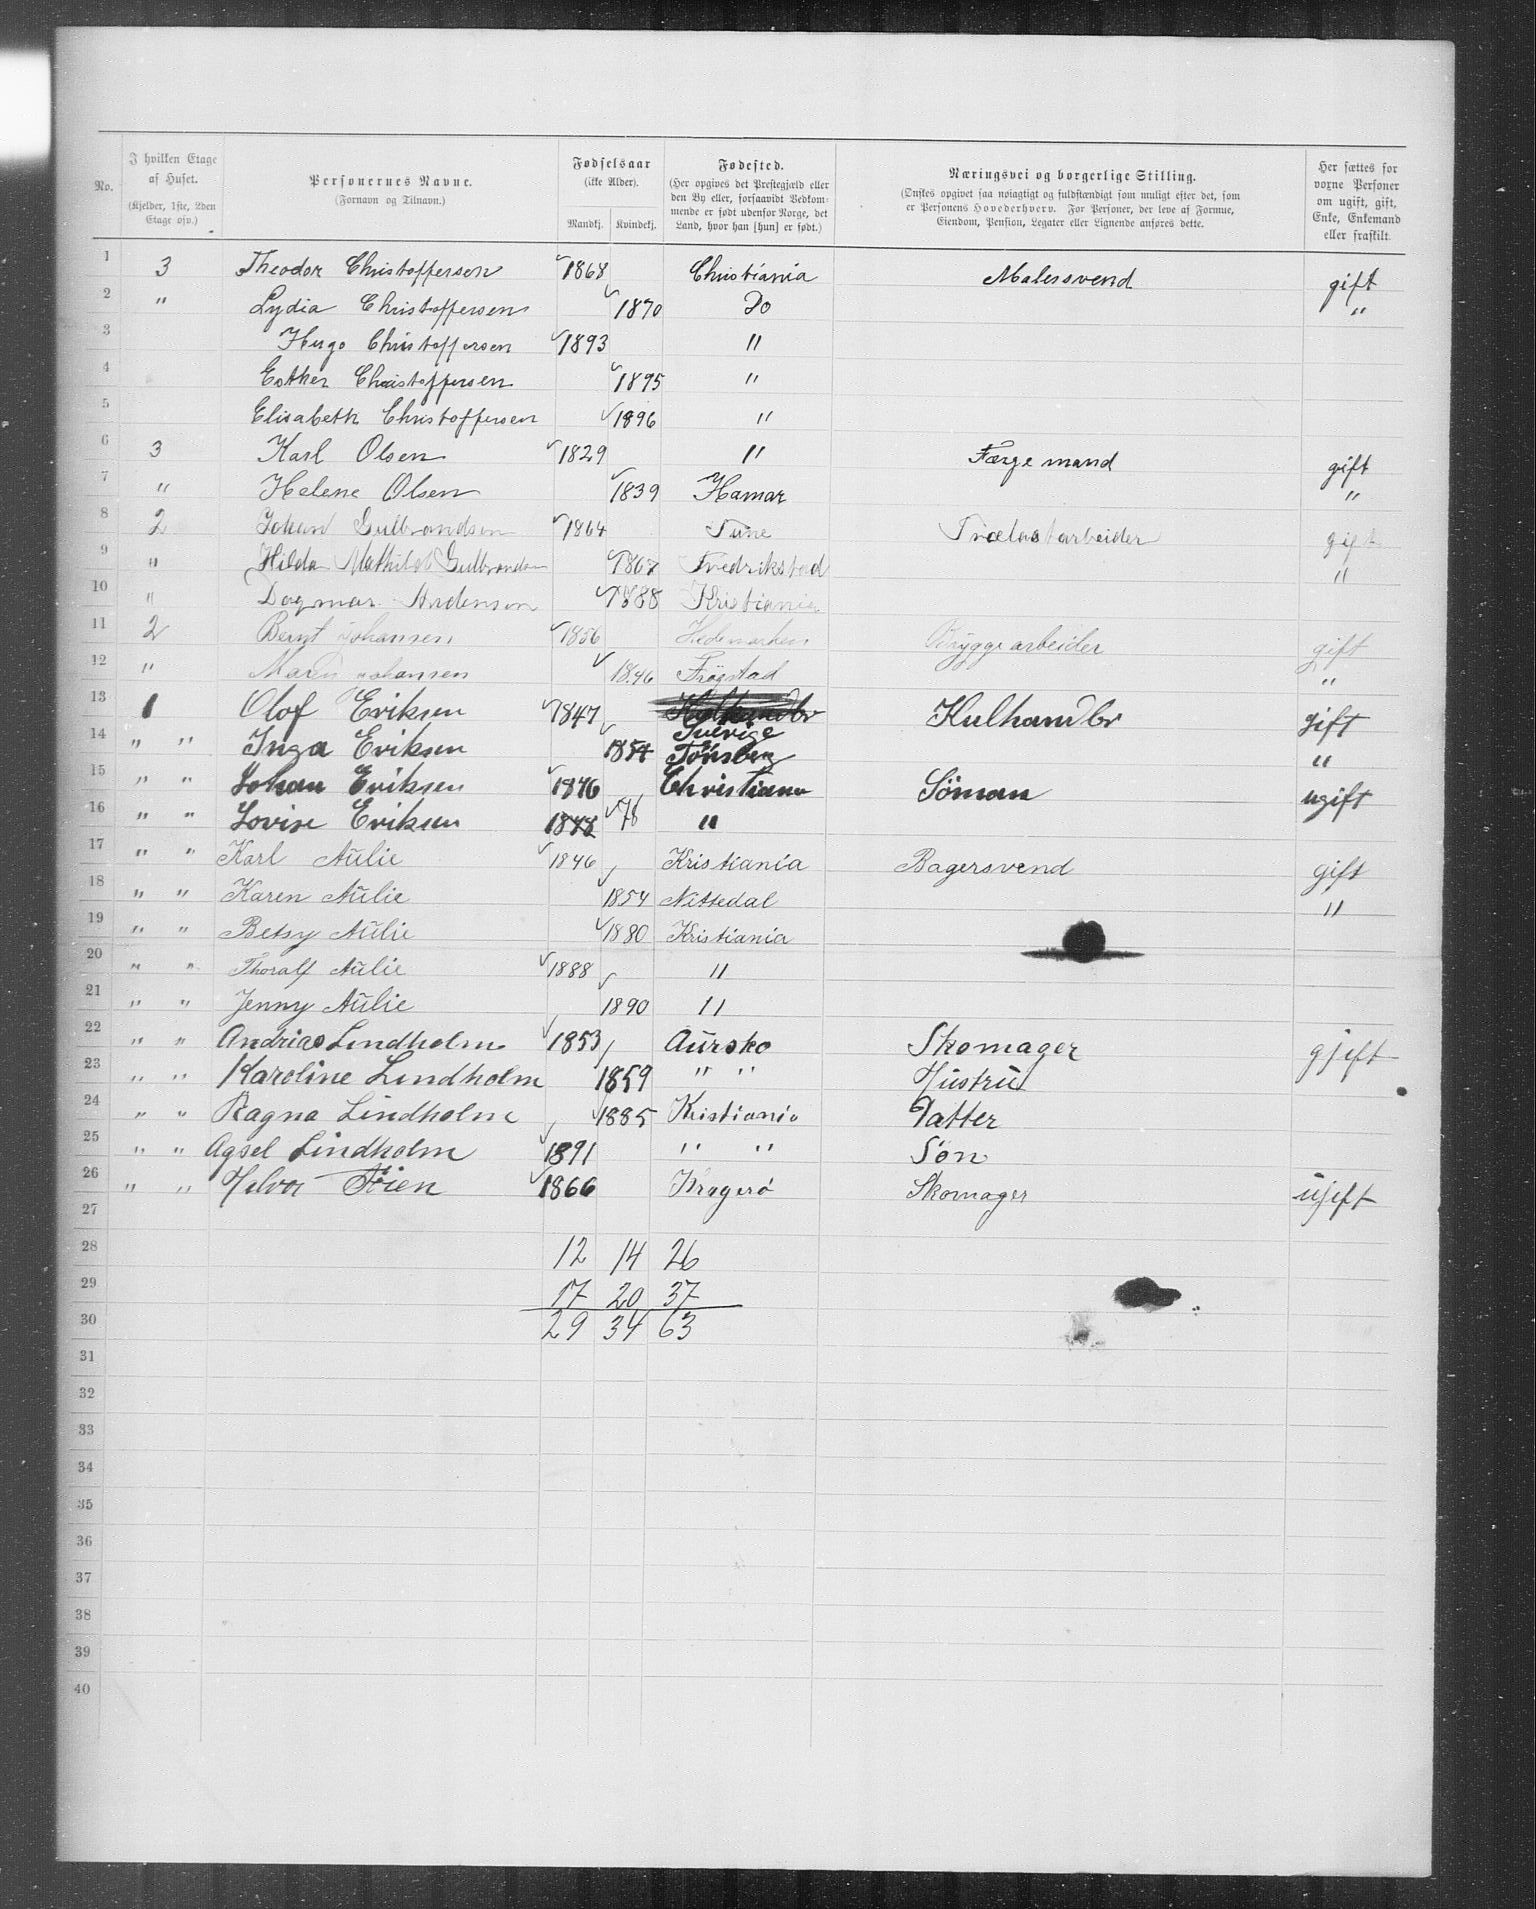 No.
I hvilken Etage af Huset.
(Kjelder, 1ste, 2den Etage osv.)
Personernes Navne.
(Fornavn og Tilnavn.)
Fødselsaar
(ikke Alder).
Mandkj. Kvindekj.
Fødested.
(Her opgives det Prestegjæld eller
den By eller, forsaavidt Vedkom-
mende er født udenfor Norge, det
Land, hvor han [hun] er født.)
Næringsvei og borgerlige Stilling.
(Ønskes opgivet saa nøiagtigt og fuldstændigt som muligt efter det, som
er Personens Hovederhverv. For Personer, der leve af Formue,
Eiendom, Pension, Legater eller Lignende anføres dette.
Her sættes for
vorne Personer
om ugift, gift,
Enke, Enkemand
eller fraskilt.
1 3 Theodor Christoffersen 1868 Christiania Malersvend gift
2 " Lydia Christoffersen 1870 Do "
3 Hugo Christoffersen 1893 "
4 Esther Christoffersen 1895 "
5 Elisabeth Christoffersen 1896 "
6 3 Karl Olsen 1829 " Færgemand gift
7 " Helene Olsen 1839 Hamar "
8 2 Johan Gulbrandsen 1864 Tune Trælastarbeider gift
9 " Hilda Mathilde Gulbrandsen 1867 Fredrikstad "
10 " Dagmar Andersen 1888 Kristiania
11 2 Bernt Johansen 1856 Hedemarken Bryggearbeider gift
12 " Maren Johansen 1846 Frøgstad "
13 1 Olof Eriksen 1847 Sverige Kulhandlr gift
14 " " Inga Eriksen 1854 Tönsberg "
15 " " Johan Eriksen 1876 Christiania Söman ugift
16 " " Lovise Eriksen 1878 78 "
17 " " Karl Aulie 1846 Kristiania Bagersvend gift
18 " " Karen Aulie 1854 Nittedal "
19 " " Betsy Aulie 1880 Kristiania
20 " " Thoralf Aulie 1888 "
21 " " Jenny Aulie 1890 "
22 " " Andrias Lindholm 1853 Aursko Skomager gjeft
23 " " Karoline Lindholm 1859 " " Hustru
24 " " Ragna Lindholm 1885 Kristiania Datter
25 " " Agsel Lindholm 1891 " " Søn
26 " " Helvor Föien 1866 Kragerö Skomager ujeft
27
28 12 14 26
29 17 20 37
30 29 34 63
31
32
33
34
35
36
37
38
39
40